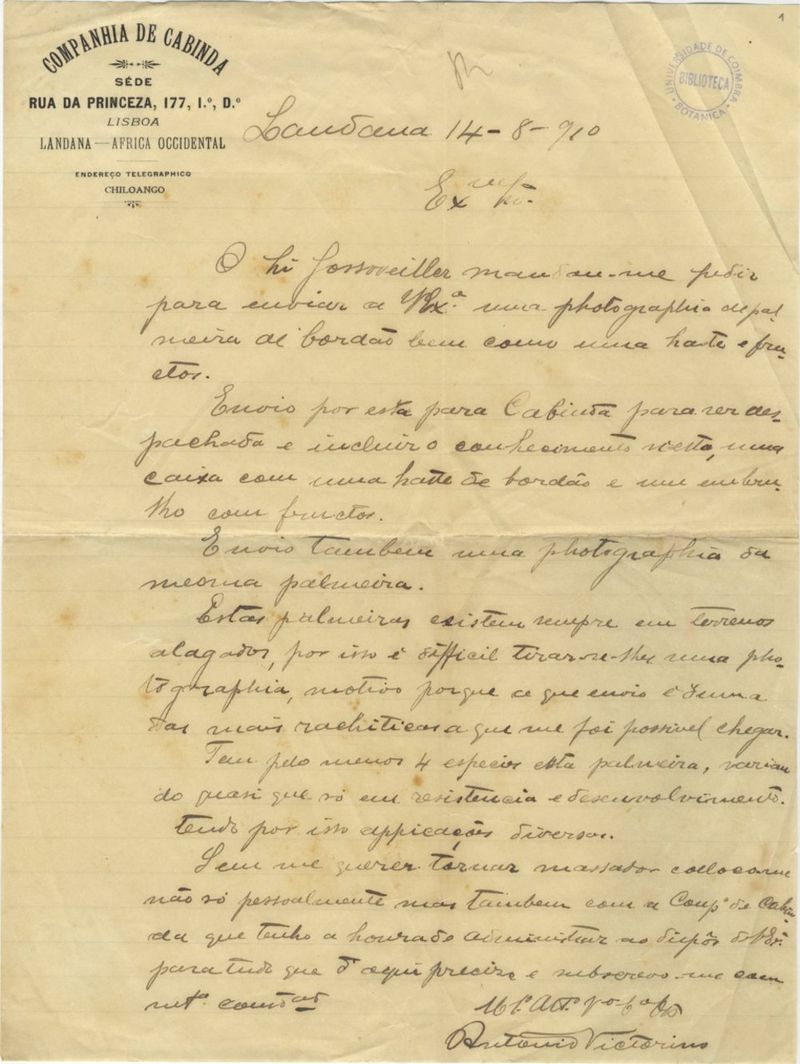 1
COMPANHIA DE CABINDA
SÉDE
RUA DA PRINCEZA, 177, 1.º, D.º
LISBOA
LANDANA — AFRICA OCCIDENTAL
ENDEREÇO TELEGRAPHICO
CHILOANGO
UNIVERSIDADE DE COIMBRA
BIBLIOTECA
BOTANICA
Landana 14-8-910
Ex.mo Sr.
O Sr Gossweiller mandou-me pedir
para enviar a V. Ex.ª uma photographia de pal
meira de bordão bem como uma haste e fru-
ctos.
Envio por esta para Cabinda para ser des-
pachada e incluir o conhecimento n'esta, uma
caixa com uma haste de bordão e um embru-
lho com fructos.
Envio tambem uma photographia da
mesma palmeira.
Estas palmeiras existem sempre em terrenos
alagados, por isso é difficil tirar-se-lhes uma pho-
tographia, motivo porque a que envio é d'uma
das mais rachiticas a que me foi possivel chegar.
Tem pelo menos 4 especies esta palmeira, varian
do quasi que só em resistencia e desenvolvimento.
tendo por isso appicações diversas.
Sem me querer tornar massador colloco-me
não só pessoalmente mas tambem com a Comp.ª de Cabin
da que tenho a honra de administrar ao dispôr de V. Ex.
para tudo que d'aqui precize e subscrevo-me com
mt.ª
Antonio Victorino